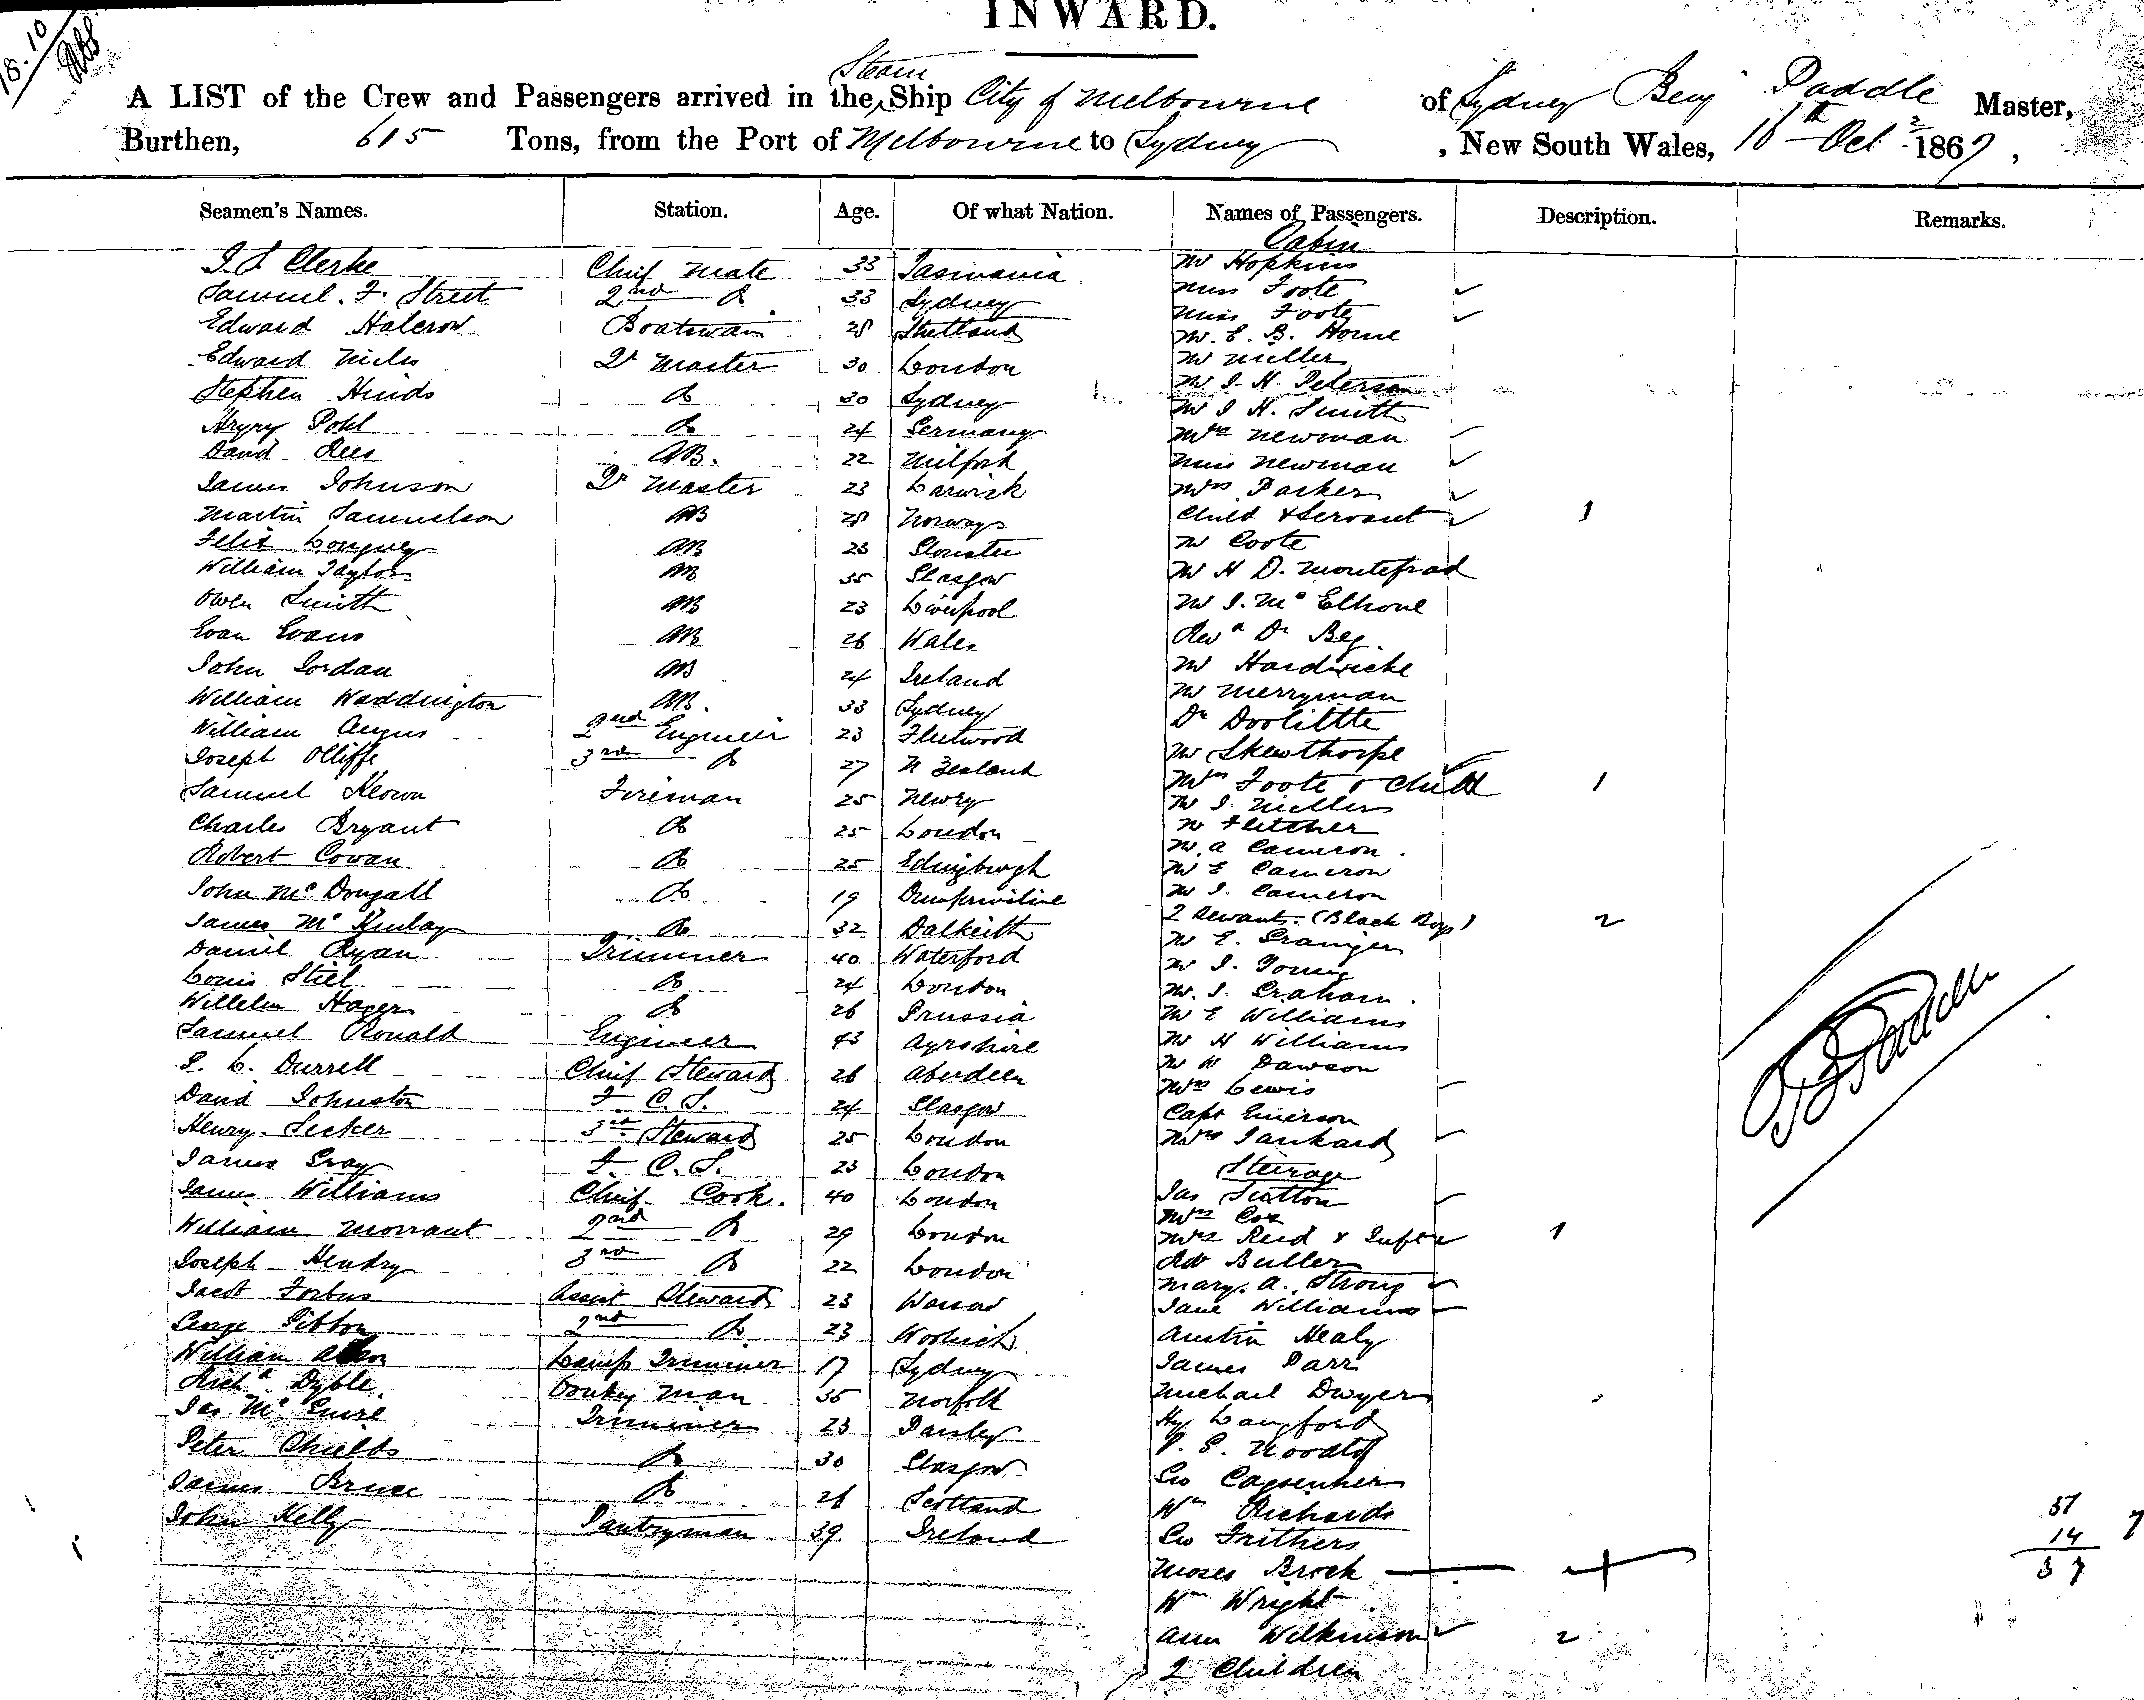 18.10
INWARD.
A LIST of the Crew and Passengers arrived in the Steam Ship City of Melbourne of Sydney Benj Paddle Master,
Burthen, 615 Tons, from the Port of Melbourne to Sydney, New South Wales, 18th Oct 1867,
Seamen's Names. Station. Age. Of what Nation. Names of Passengers. Description. Remarks.
Cabin
Clerke Chief Mate 33 Tasmania Mr Hopkins
Samuel. F. Street 2nd Do 33 Sydney Miss Foote
Edward Halcrow Boatswain 28 Shetland Miss Foote
Mr. E. B. Horne
Edward Miles Qr Master 30 London Mr Miller
Stephen Hinds Do 30 Sydney Mr J. H. Peterson
Mr J H. Smith
Pohl Do 24 Germany Mrs Newman
David Rees AB. 22 Milford Miss Newman
James Johnson Qr Master 23 Mrs Parker
Martin Samuelson AB 28 Norway Child & Servant 1
Felix AB 23 Mr Coote
William Taylor AB 35 Glasgow Mr H D.
Owen Smith AB 23 Liverpool Mr J. Mc Elhone
Evan Evans AB 26 Wales Revd Dr Beg
John Jordan AB 24 Ireland Mr Hardwicke
William Waddington AB. 33 Sydney Mr Merryman
William Angus 2nd Engineer 23 Fleetwood Dr Doolittle
Joseph Olliffe 3rd Do 27 N Zealand Mr Skewthorpe
Samuel Keown Fireman 25 Newry Mrs Foote & Child 1
Mr J. Miller
Charles Bryant Do 25 London Mr Fletcher
Robert Cowan Do 25 Edingburgh Mr A Cameron.
Mr E Cameron
John McDougall Do 19 Mr J. Cameron
James McKinlay Do 32 Dalkeith 2 Servants. (Black Boys) 2
Daniel Ryan Trimmer 40 Waterford Mr E. Grainger
Louis Stiel Do 24 London Mr J. Young
Willelm Hagen Do 26 Prussia Mr. J. Graham.
Mr E Williams
Samuel Ronald Engineer 43 Ayrshire Mr H Williams
Durrell Chief Steward 26 Aberdeen Dawson
Mrs Lewis
David Johnston F. C. S. 24 Glasgow Capt Emerson
Henry Secker 3rd Steward 25 London Mrs Tankard
James Gray S. C. S. 23 London Steerage
James Williams Chief Cook. 40 London Jas Sutton
Mrs Cox
William Morrant 2nd Do 29 London Mrs Reid & Inft 1
Joseph Hendry 3rd Do 22 London Butler
Mary. A. Strong
Forbes Assist Steward 23 Jane Williams
George Pibbon 2nd Do 23 Woolwich Austin Healy
William Lamp Trimmer 17 Sydney James Parr
Richd Dyble. Donkey Man 35 Norfolk Michael Dwyer
Jas McGuire Trimmer 23 Paisley Hy Langford
Peter Chields Do 30 Glasgow
Geo
James Bruce Do 26 Scotland Wm Richards
John Kelly Pantryman 39 Ireland Geo Frithers
Moses Brock
Wm Wright
Ann Wilkinson 2
2 Children
B Paddle
14